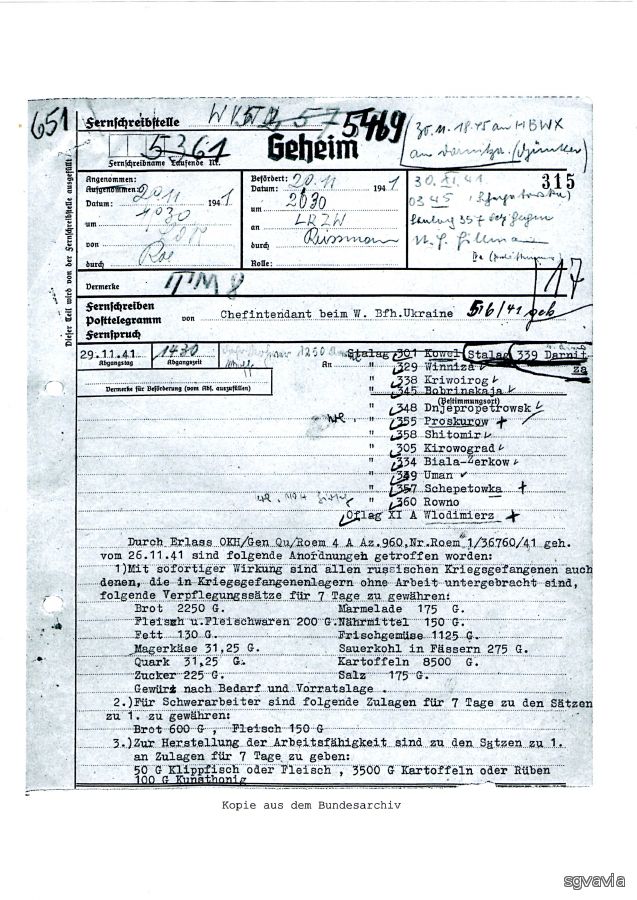 651
Fernschreibstelle
5469
5361
Geheim
Fernschreibname Laufende Nr.
315
Angenommen:
Aufgenommen:
Datum: 20.11 194 1
um 4030
von
durch
Befördert:
Datum: 20.11 194 1
um 2030
an LRZW
durch Russmann
Rolle:
30. XI. 41
0345
Dieser Teil wird von der Fernschreibstelle ausgefüllt
Vermerke
17
Fernschreiben
Posttelegramm von Chefintendant beim W. Bfh.Ukraine 516/41 geh
Fernspruch
29.11.41 1430
Abgangstag Abgangszeit
An
Vermerke für Beförderung (vom Abs. ausgefüllen)
Stalag 301 Kowel Stalag 339 Darnit
za
" 329 Winniza
" 338 Kriwoirog
" 345 Bobrinskaja
(Bestimmungsort)
" 348 Dnjepropetrowsk
" 355 Proskurow +
" 358 Shitomir
" 305 Kirowograd
" 334 Biala-Zerkow
" 349 Uman
" 357 Schepetowka +
" 360 Rowno
Oflag XI A Wlodimierz +
Durch Erlass OKH/Gen Qu/Roem 4 A Az.960,Nr.Roem 1/36760/41 geh.
vom 26.11.41 sind folgende Anordnungen getroffen worden:
1)Mit sofortiger Wirkung sind allen russischen Kriegsgefangenen auch
denen, die in Kriegsgefangenenlagern ohne Arbeit untergebracht sind,
folgende Verpflegungssätze für 7 Tage zu gewähren:
Brot 2250 G. Marmelade 175 G.
Fleisch u.Fleischwaren 200 G. Nährmittel 150 G.
Fett 130 G. Frischgemüse 1125 G.
Magerkäse 31,25 G. Sauerkohl in Fässern 275 G.
Quark 31,25 G. Kartoffeln 8500 G.
Zucker 225 G. Salz 175 G.
Gewürz nach Bedarf und Vorratslage .
2.)Für Schwerarbeiter sind folgende Zulagen für 7 Tage zu den Sätzen
zu 1. zu gewähren:
Brot 600 G , Fleisch 150 G
3.)Zur Herstellung der Arbeitsfähigkeit sind zu den Sätzen zu 1.
an Zulagen für 7 Tage zu geben:
50 G Klippfisch oder Fleisch , 3500 G Kartoffeln oder Rüben
100 G Kunsthonig
Kopie aus dem Bundesarchiv
sgvavia